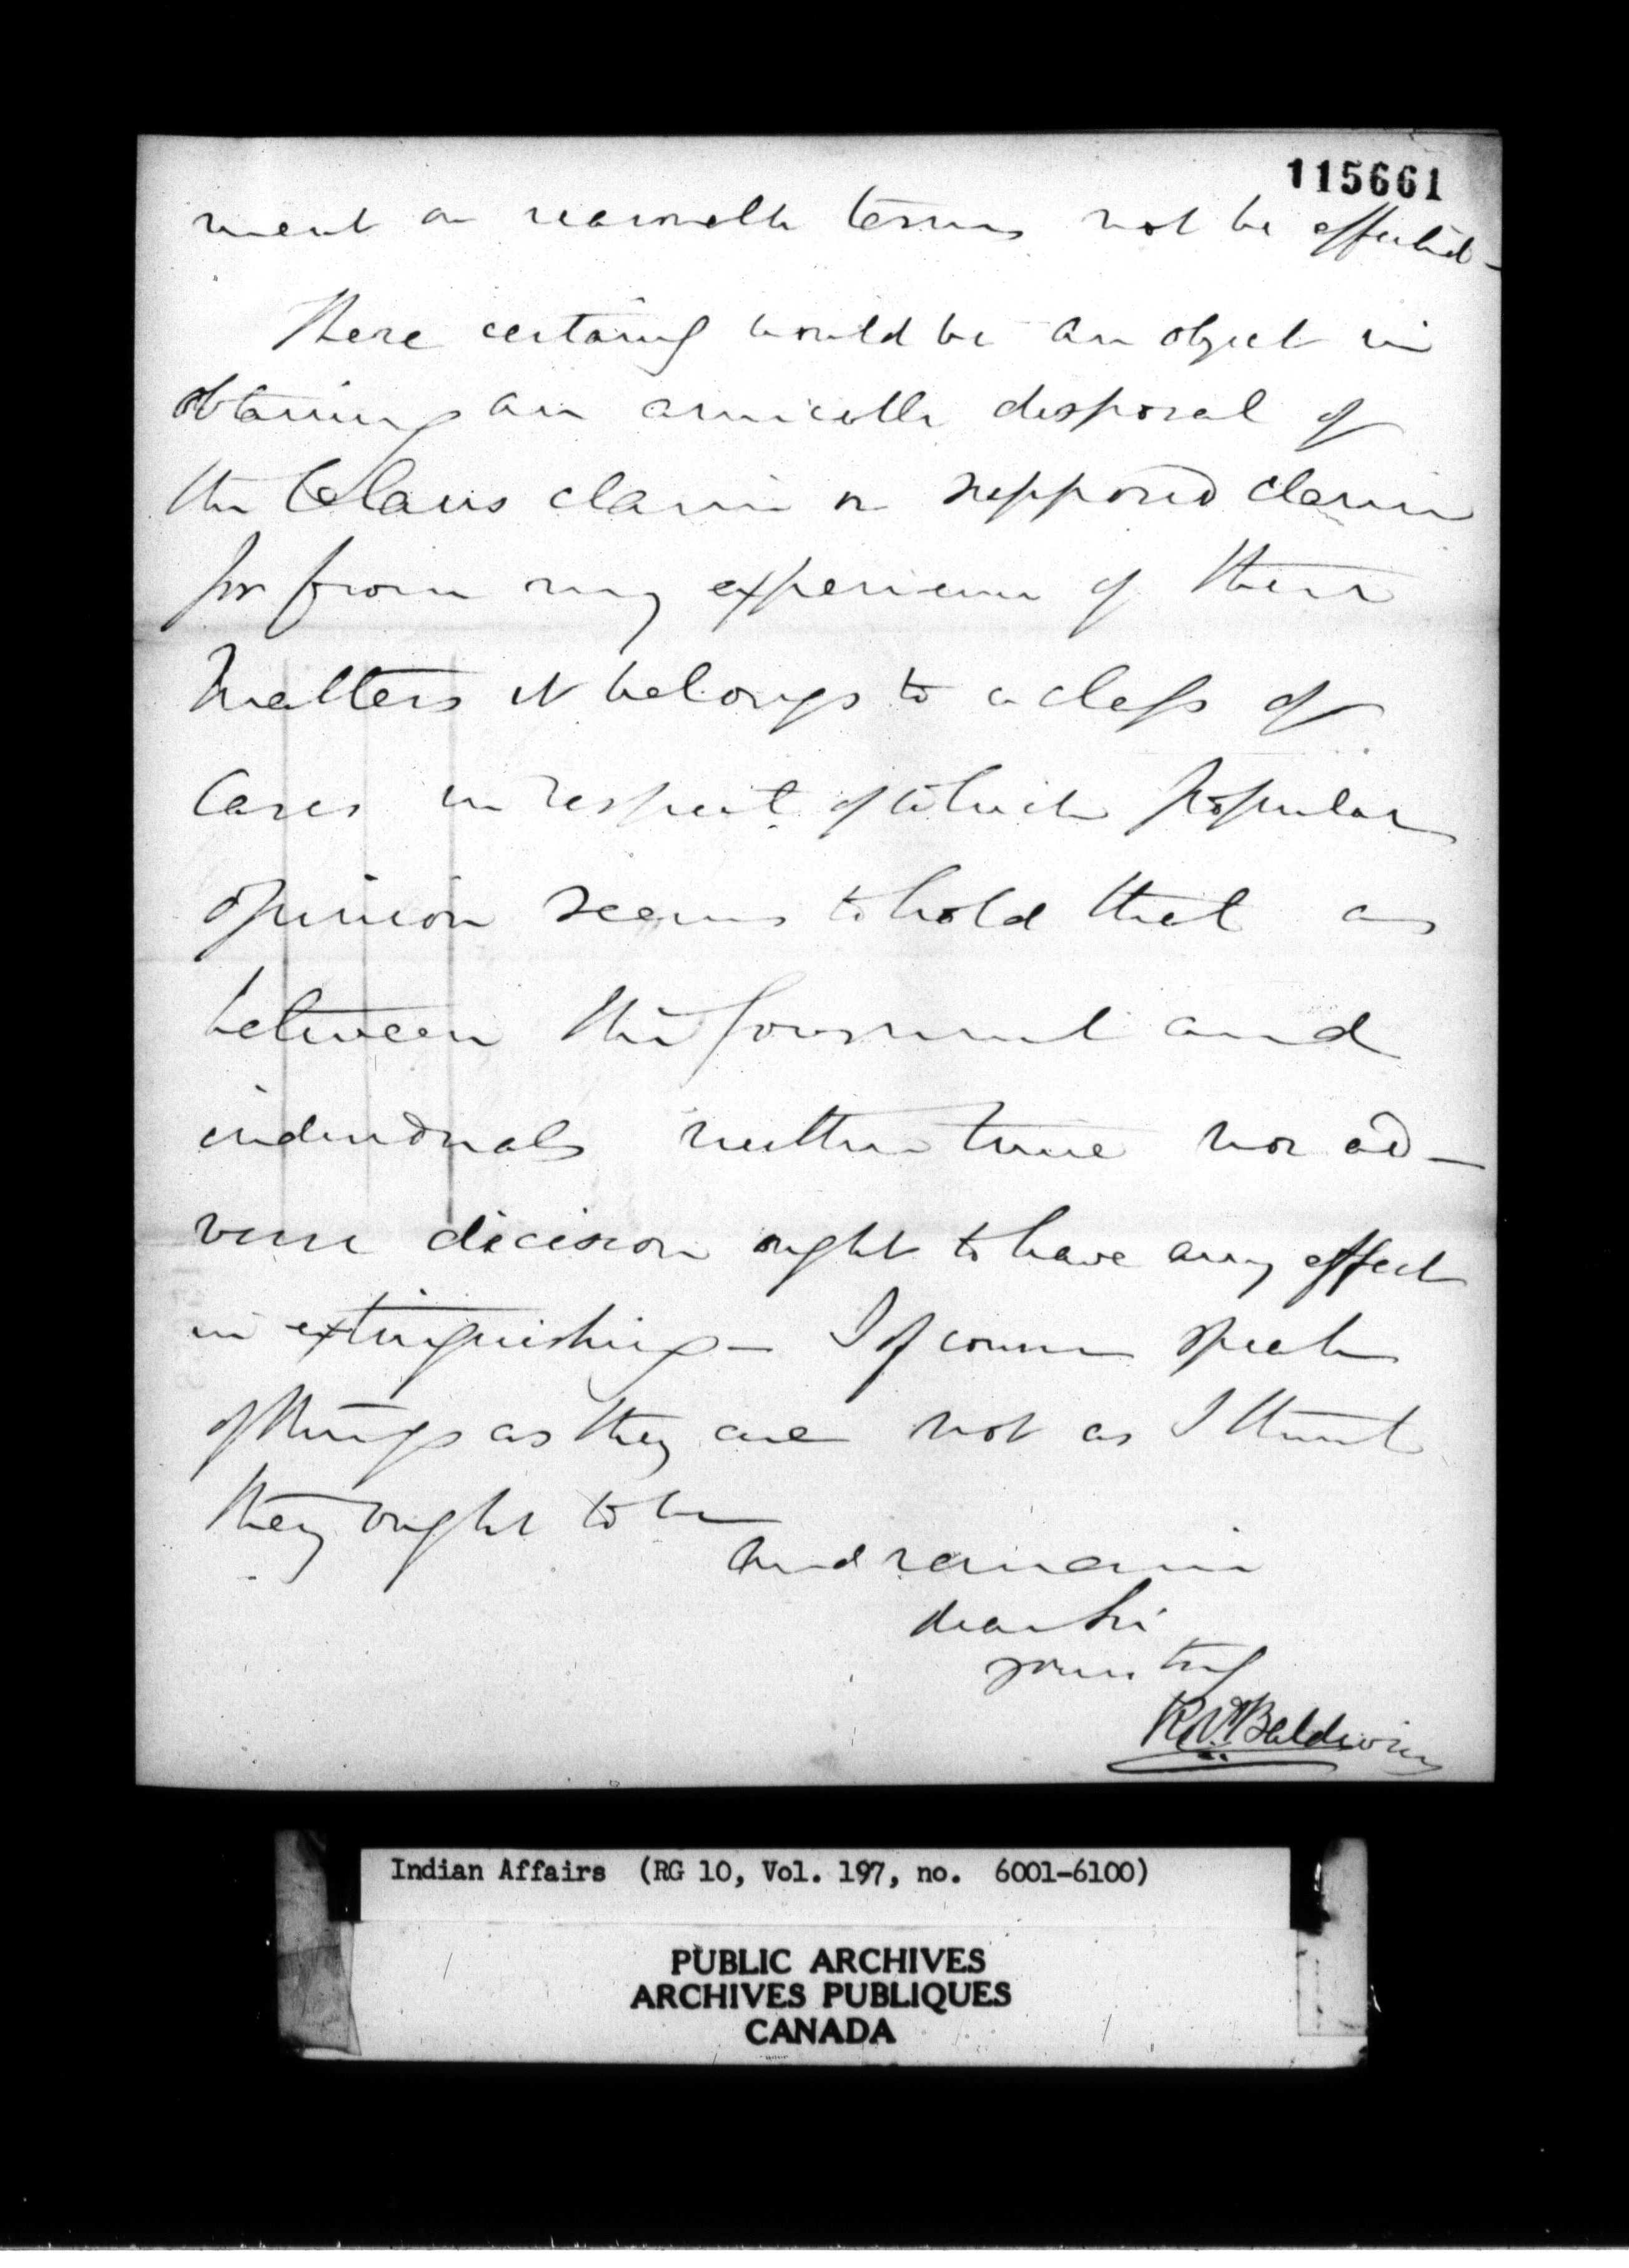 115661
ment on reasonable terms not be effected -
There certainly would be an object in
obtaining an amicable disposal of
the Claus claim or supposed claim
for from my experience of these
matters it belongs to a class of
Cases in respect of which popular
opinion seems to hold that as
between the Government and
individuals neither time nor ad-
verse decision ought to have any effect
in extinguishing - I of course speak
of things as they are not as I think
they ought to be
And remain
dear Sir
yours truly
Baldwin
Indian Affairs (RG 10, Vol. 197, no. 6001-6100)
PUBLIC ARCHIVES
ARCHIVES PUBLIQUES
CANADA